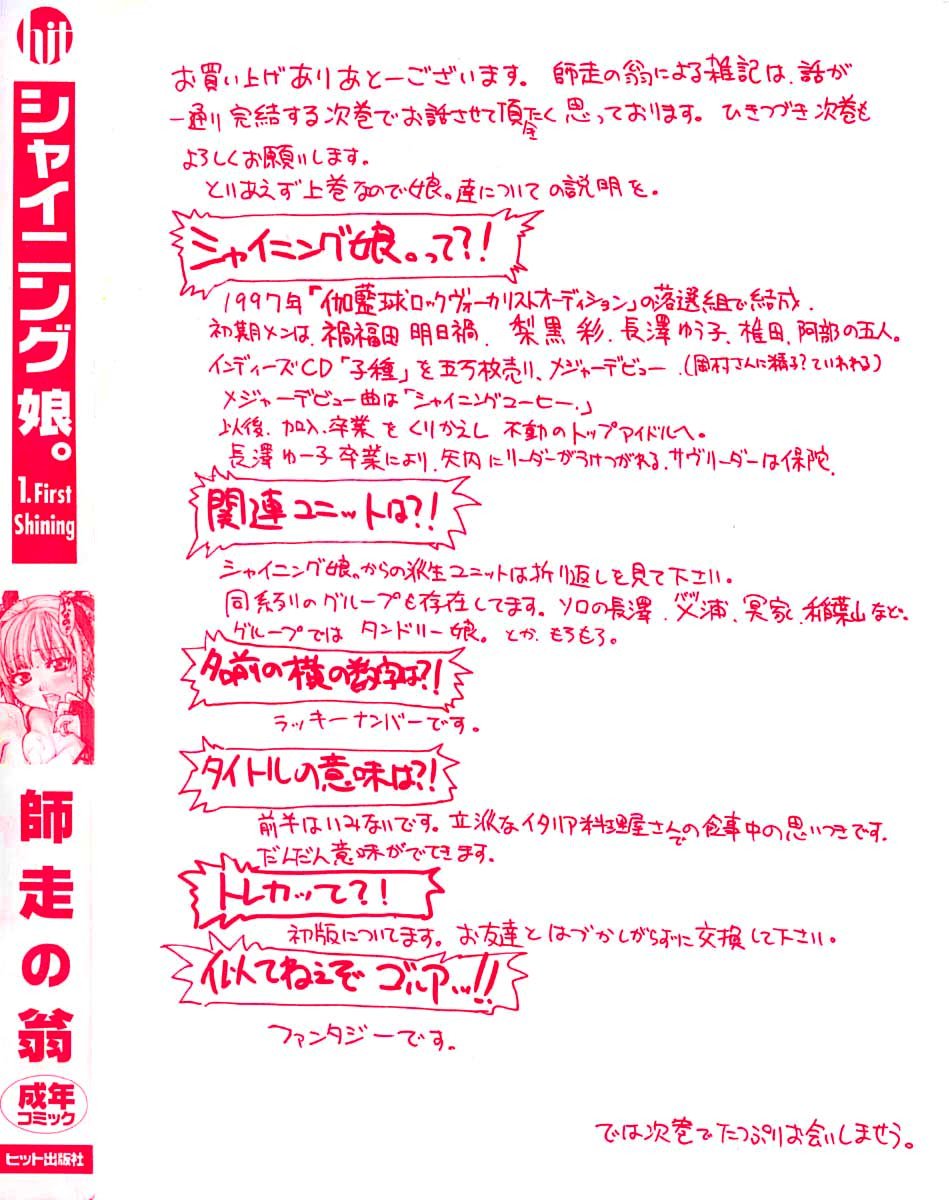 hit
シャイニング娘。
1.First
Shining
師走の翁
成年
コミック
ヒット出版社
お買い上げありあとーございます。 師走の翁による雑記は、話が
一通り完結する次巻でお話させて頂きたく思っております。 ひきつづき次巻も
よろしくお願いします。
とりあえず上巻なので娘。達についての説明を。
シャイニング娘。って?!
1997年「伽藍球ロックヴォーカリストオーディション」の落選組で結成.
初期メンは、禍福田 明日禍、 梨黒 彩、長澤ゆう子、椎田、阿部の五人。
インディーズCD「子種」を五万枚売り、メジャーデビュー.(岡村さんに精子?ていわれる)
メジャーデビュー曲は「シャイニングコーヒー.」
以後、加入、卒業をくりかえし 不動のトップアイドルへ。
長澤ゆー子卒業により、矢内にリーダーがうけつがれる、サヴリーダーは保陀.
関連ユニットは?!
シャイニング娘。からの派生ユニットは折り返しを見て下さい。
同系列のグループも存在してます。ソロの長澤、 浦、冥家、稲葉山など。
グループでは タンドリー娘。とか、もろもろ。
名前の横の数字は?!
ラッキーナンバーです。
タイトルの意味は?!
前半はいみないです。立派なイタリア料理屋さんでの食事中の思いつきです.
だんだん意味がでてきます.
トレカって?!
初版についてます。お友達とはづかしがらずに交換して下さい。
似てねえぞ ゴルアッ!!
ファンタジーです。
では次巻でたっぷりお会いしませう。